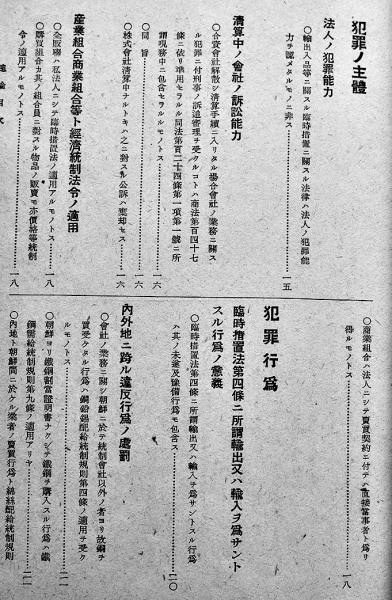 犯罪ノ主體
法人ノ犯罪能力
〇輸出入品等ニ關スル臨時措置ニ關スル法律ハ法人ノ犯罪能
力ヲ認メタルモノニ非ス……………一五
清算中ノ會社ノ訴訟能力
〇合資會社解散シ清算手續ニ入リタル場合會社ノ業務ニ關ス
ル犯罪ニ付刑事ノ訴追審理ヲ受クルコトハ商法第百四十七
條ニ依リ準用セラルル同法第百二十四條第一項第一號ニ所
謂現務中ニ包含セラルルモノトス……………一六
〇同旨……………一六
〇株式會社清算中ナルトキハ之ニ對スル公訴ハ棄却セス……………一六
産業組合商業組合等ト經濟統制法令ノ適用
〇全販聯ハ私法人ニシテ臨時措置法ノ適用アルモノトス……………一八
〇購買組合カ其ノ組合員ニ對スル物品ノ販賣モ亦價格等統制
令ノ適用アルモノトス……………一八
〇商業組合ハ法人ニシテ賣買契約ニ付テハ直接當事者ト爲リ
得ルモノトス……………一八
犯罪行爲
臨時措置法第四條ニ所謂輸出又ハ輸入ヲ爲サント
スル行爲ノ意義
〇臨時措置法第四條ニ所謂輸出又ハ輸入ヲ爲サントスル行爲
ハ其ノ未遂及豫備行爲モ包含ス……………二〇
內外地ニ跨ル違反行爲ノ處罰
〇會社ノ業務ニ關シ朝鮮ニ於テ統制會社以外ノ者ヨリ故銅ヲ
買受ケタル行爲ハ銅鉛錫配給統制規則第四條ノ適用ヲ受ク
ルモノトス……………二一
〇朝鮮ヨリ鐵鋼割當證明書ナクシテ鐵鋼ヲ購入スル行爲ハ鐵
鋼需給統制規則第九條ノ適用アリヤ……………二一
〇內地ト朝鮮間ニ於ケル業者ノ賣買行爲ト絲配給統制規則